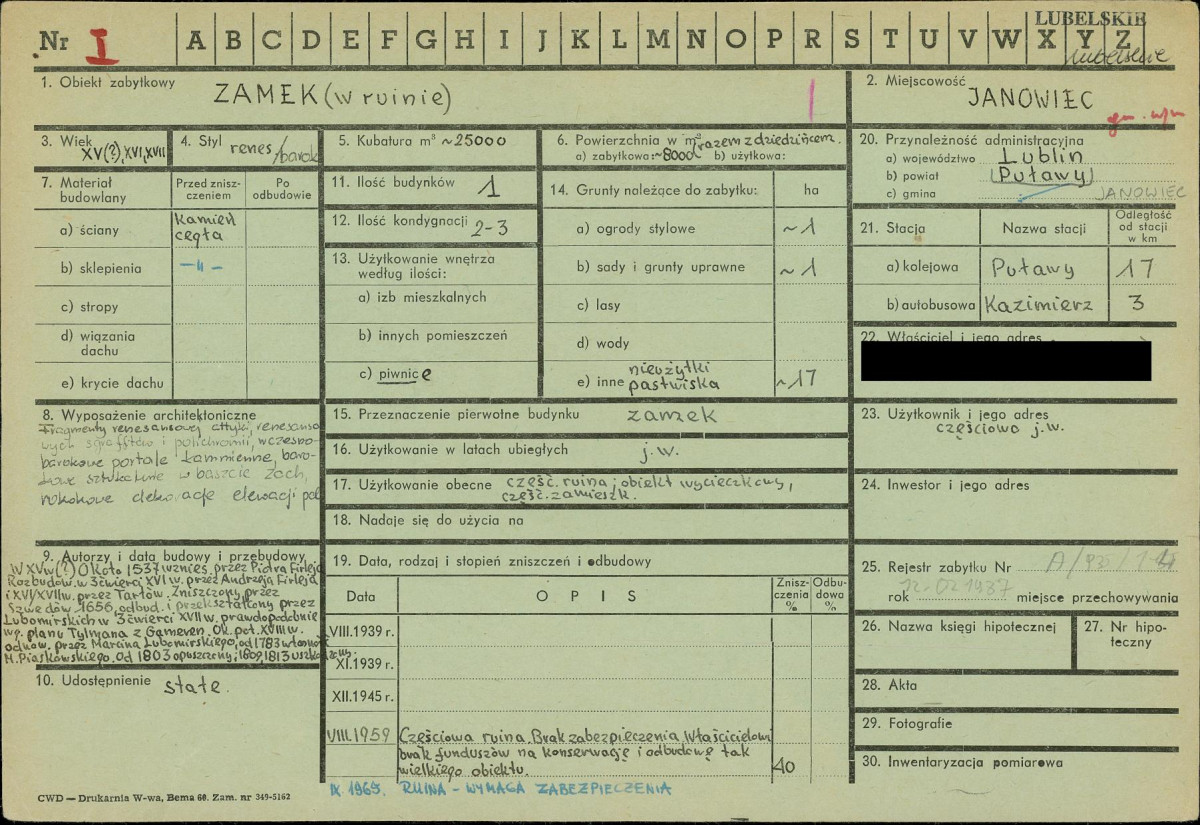 Nr I A B C D E F G H I J K L M N O P R S T U V W X Y Z
LUBELSKIE
lubelskie
1. Obiekt zabytkowy ZAMEK (w ruinie)
2. Miejscowość
JANOWIEC
gm. w/m
3. Wiek
XV(?), XVI, XVII
4. Styl renes/barok
5. Kubatura m³ ~25000
6. Powierzchnia w m² razem z dziedzińcem.
a) zabytkowa: ~8000 b) użytkowa:
20. Przynależność administracyjna
a) województwo Lublin
b) powiat (Puławy)
c) gmina JANOWIEC
7. Materiał budowlany
Przed zniszczeniem
Po odbudowie
a) ściany Kamień cegła
b) sklepienia –"–
c) stropy
d) wiązania dachu
e) krycie dachu
11. Ilość budynków 1
12. Ilość kondygnacji 2-3
13. Użytkowanie wnętrza
według ilości:
a) izb mieszkalnych
b) innych pomieszczeń
c) piwnic e
14. Grunty należące do zabytku: ha
a) ogrody stylowe ~1
b) sady i grunty uprawne ~1
c) lasy
d) wody
e) inne nieużytki pastwiska ~17
21. Stacja
Nazwa stacji
Odległość od stacji w km
a) kolejowa Puławy 17
b) autobusowa Kazimierz 3
22. Właściciel i jego adres
8. Wyposażenie architektoniczne
Fragmenty renesansowej attyki, renesanso
wych sgraffitów i polichromii, wczesno-
barokowe portale kamienne, baro-
kowe sztukaterie w baszcie zach,
rokokowe dekoracje elewacji poł
15. Przeznaczenie pierwotne budynku zamek
16. Użytkowanie w latach ubiegłych j.w.
17. Użytkowanie obecne częśc. ruina; obiekt wycieczkowy,
częśc. zamieszk.
18. Nadaje się do użycia na
23. Użytkownik i jego adres
częściowo j.w.
24. Inwestor i jego adres
9. Autorzy i data budowy i przebudowy,
W XVw(?) Około 1537 wznies. przez Piotra Firleja
Rozbudow. w 3 ćwierci XVI w. przez Andrzeja Firleja
i XVI/XVII w. przez Tarłów. Zniszczony przez
Szwedów 1656, odbud. i przekształcony przez
Lubomirskich w 3 ćwierci XVII w. prawdopodobnie
wg. planu Tylmana z Gameren. Ok. poł. XVIII w.
odnów. przez Marcina Lubomirskiego, od 1783 własność
M. Piaskowskiego. Od 1803 opuszczony; 1809, 1813 uszkodzony.
10. Udostępnienie stałe.
19. Data, rodzaj i stopień zniszczeń i odbudowy
Data
OPIS
Zniszczenia %
Odbudowa %
VIII.1939 r.
XI.1939 r.
XII.1945 r.
VIII.1959 Częściowa ruina. Brak zabezpieczenia. Właścicielowi
brak funduszów na konserwację i odbudowę tak
wielkiego obiektu. 40
IX 1965. RUINA – WYMAGA ZABEZPIECZENIA
25. Rejestr zabytku Nr
rok 12.02.1937 miejsce przechowywania
26. Nazwa księgi hipotecznej
27. Nr hipoteczny
28. Akta
29. Fotografie
30. Inwentaryzacja pomiarowa
CWD — Drukarnia W-wa, Bema 60. Zam. nr 349-5162